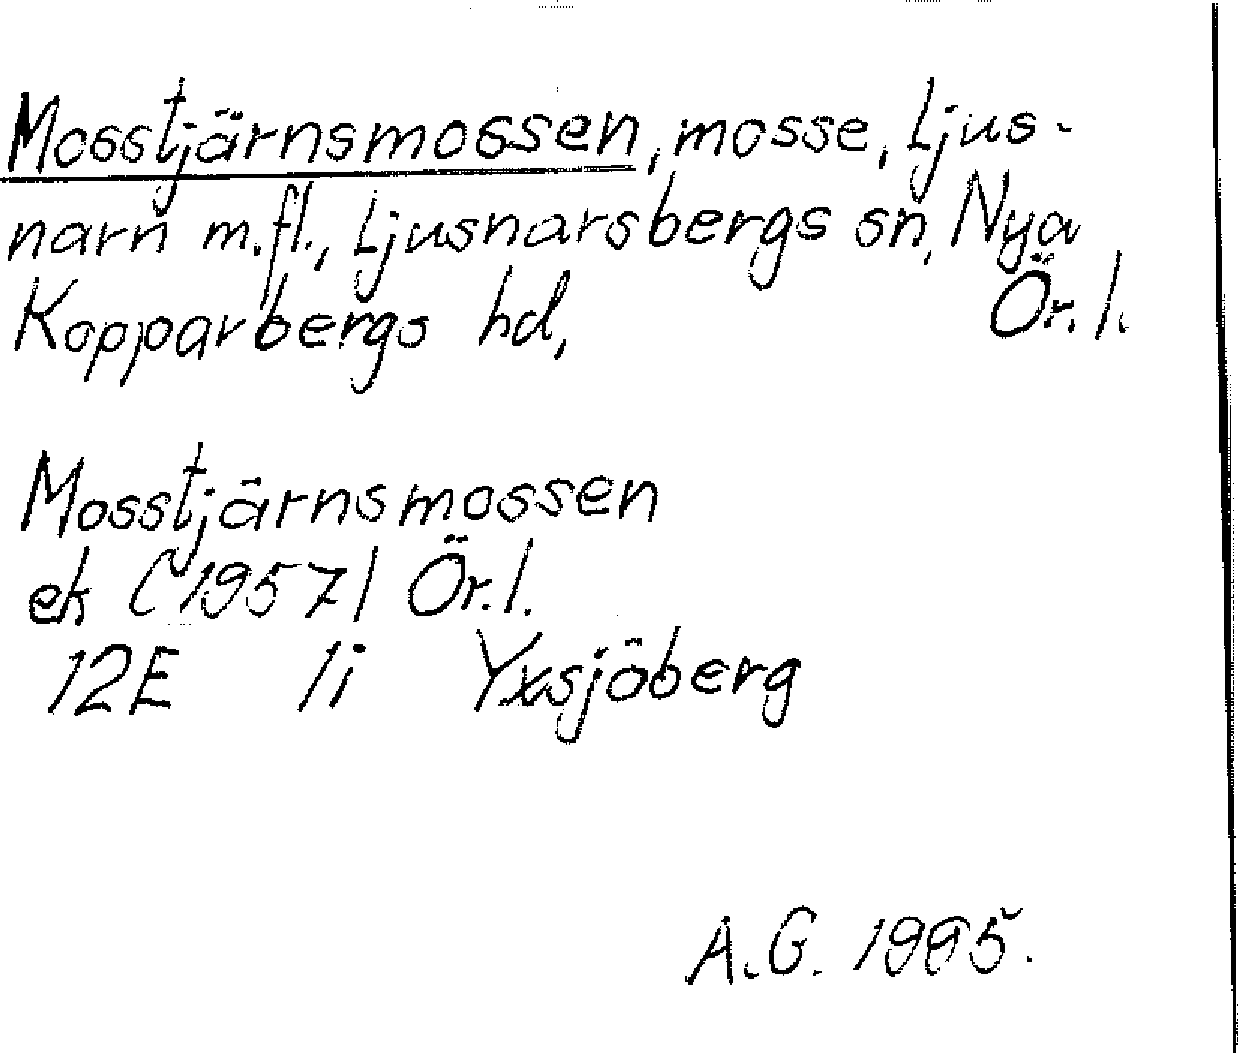 Mosstjärnsmossen, mosse, Ljus-
narn m.fl., Ljusnarsbergs sn, Nya
Kopparbergs hd, Ör. l.
Mosstjärnsmossen
ek (1957) Ör. l.
12E 1i Yxsjöberg
A.G. 1995.